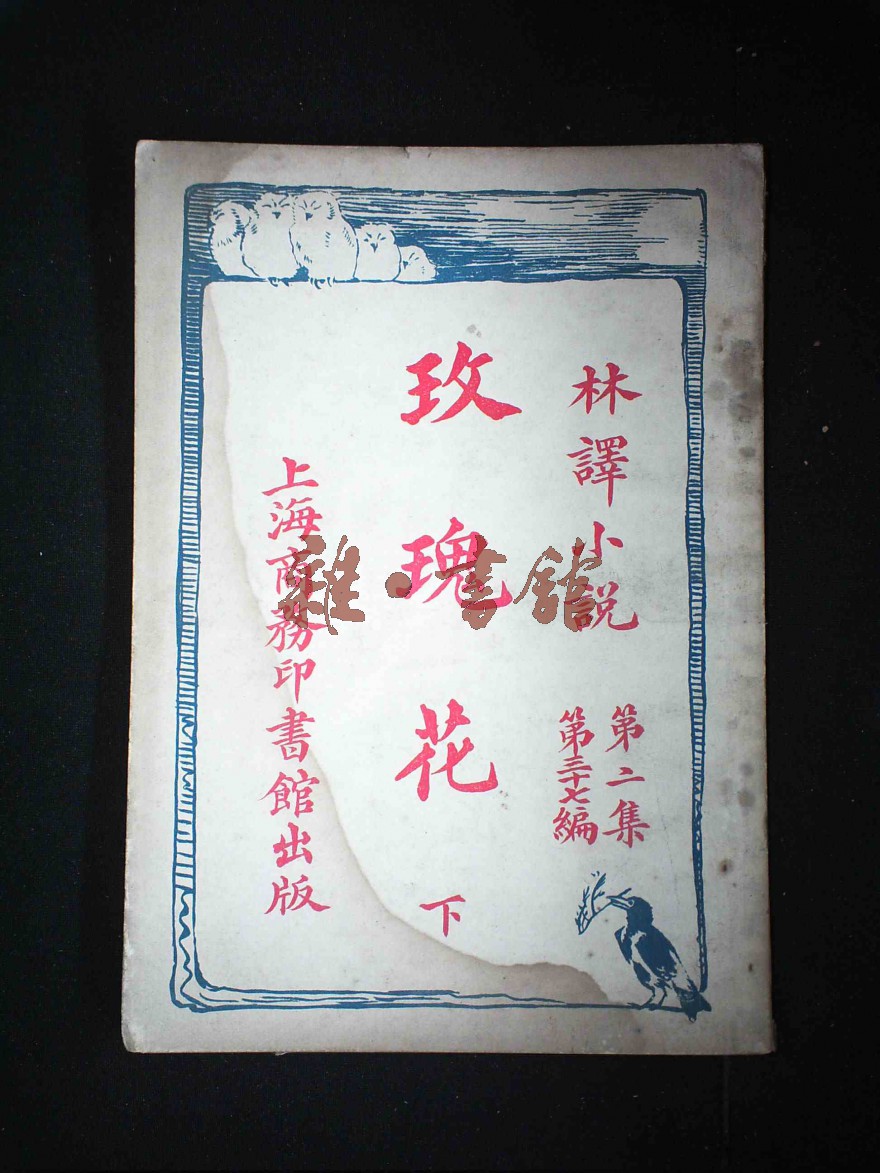 林譯小説
第二集
第三十七編
玫瑰花
下
上海商務印書館出版
雜·書館